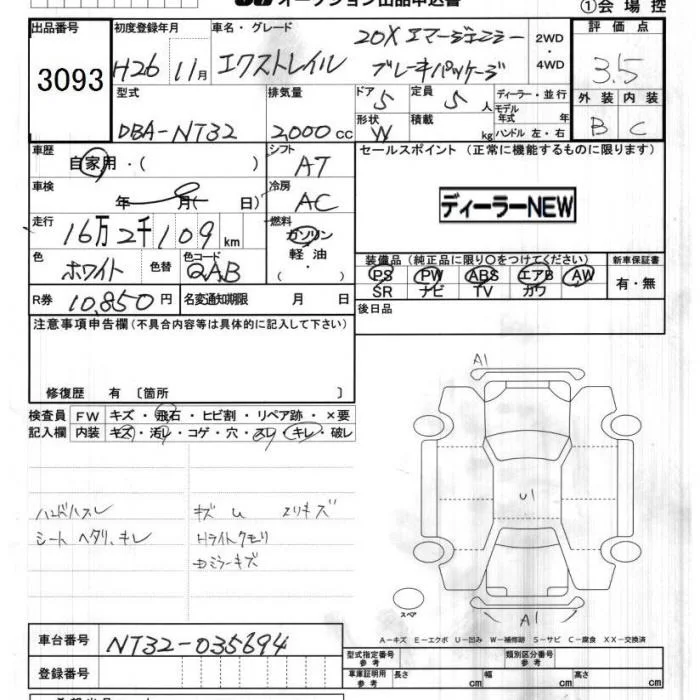 オークション出品申込書
①会場控
出品番号
3093
初度登録年月
H26 11月
車名・グレード
エクストレイル
20X エマージェンシー
ブレーキパッケージ
2WD
・
4WD
評価点
3.5
外装 内装
B C
型式
DBA-NT32
排気量
2,000cc
ドア 5
定員 5人
形状 W
積載 kg
ディーラー・並行
モデル年式 年
ハンドル 左・右
車歴
自家用・( )
シフト
AT
車検
年 月( 日)
冷房
AC
走行
16万2千109km
燃料
ガソリン
軽油
・
( )
色
ホワイト
色替
色コード
QAB
R券 10,850円
名変通知期限 月 日
セールスポイント (正常に機能するものに限ります)
ディーラーNEW
装備品 (純正品に限り○をつけてください)
PS PW ABS エアB AW
SR ナビ TV カワ
新車保証書
有・無
後日品
注意事項申告欄(不具合内容等は具体的に記入して下さい)
修復歴 有 〔箇所 〕
検査員
記入欄
FW キズ・飛石・ヒビ割・リペア跡・×要
内装 キズ・汚レ・コゲ・穴・スレ・キレ・破レ
ハンドルスレ
シート ヘタリ、キレ
キズ U エリキズ
Hライトクモリ
Dミラーキズ
A1
U1
A1
スペア
A-キズ E-エクボ U-凹み W-補修跡 S-サビ C-腐食 XX-交換済
車台番号
NT32-035694
登録番号
型式指定番号
参考
類別区分番号
参考
車庫証明用
参考
長さ cm
幅 cm
高さ cm